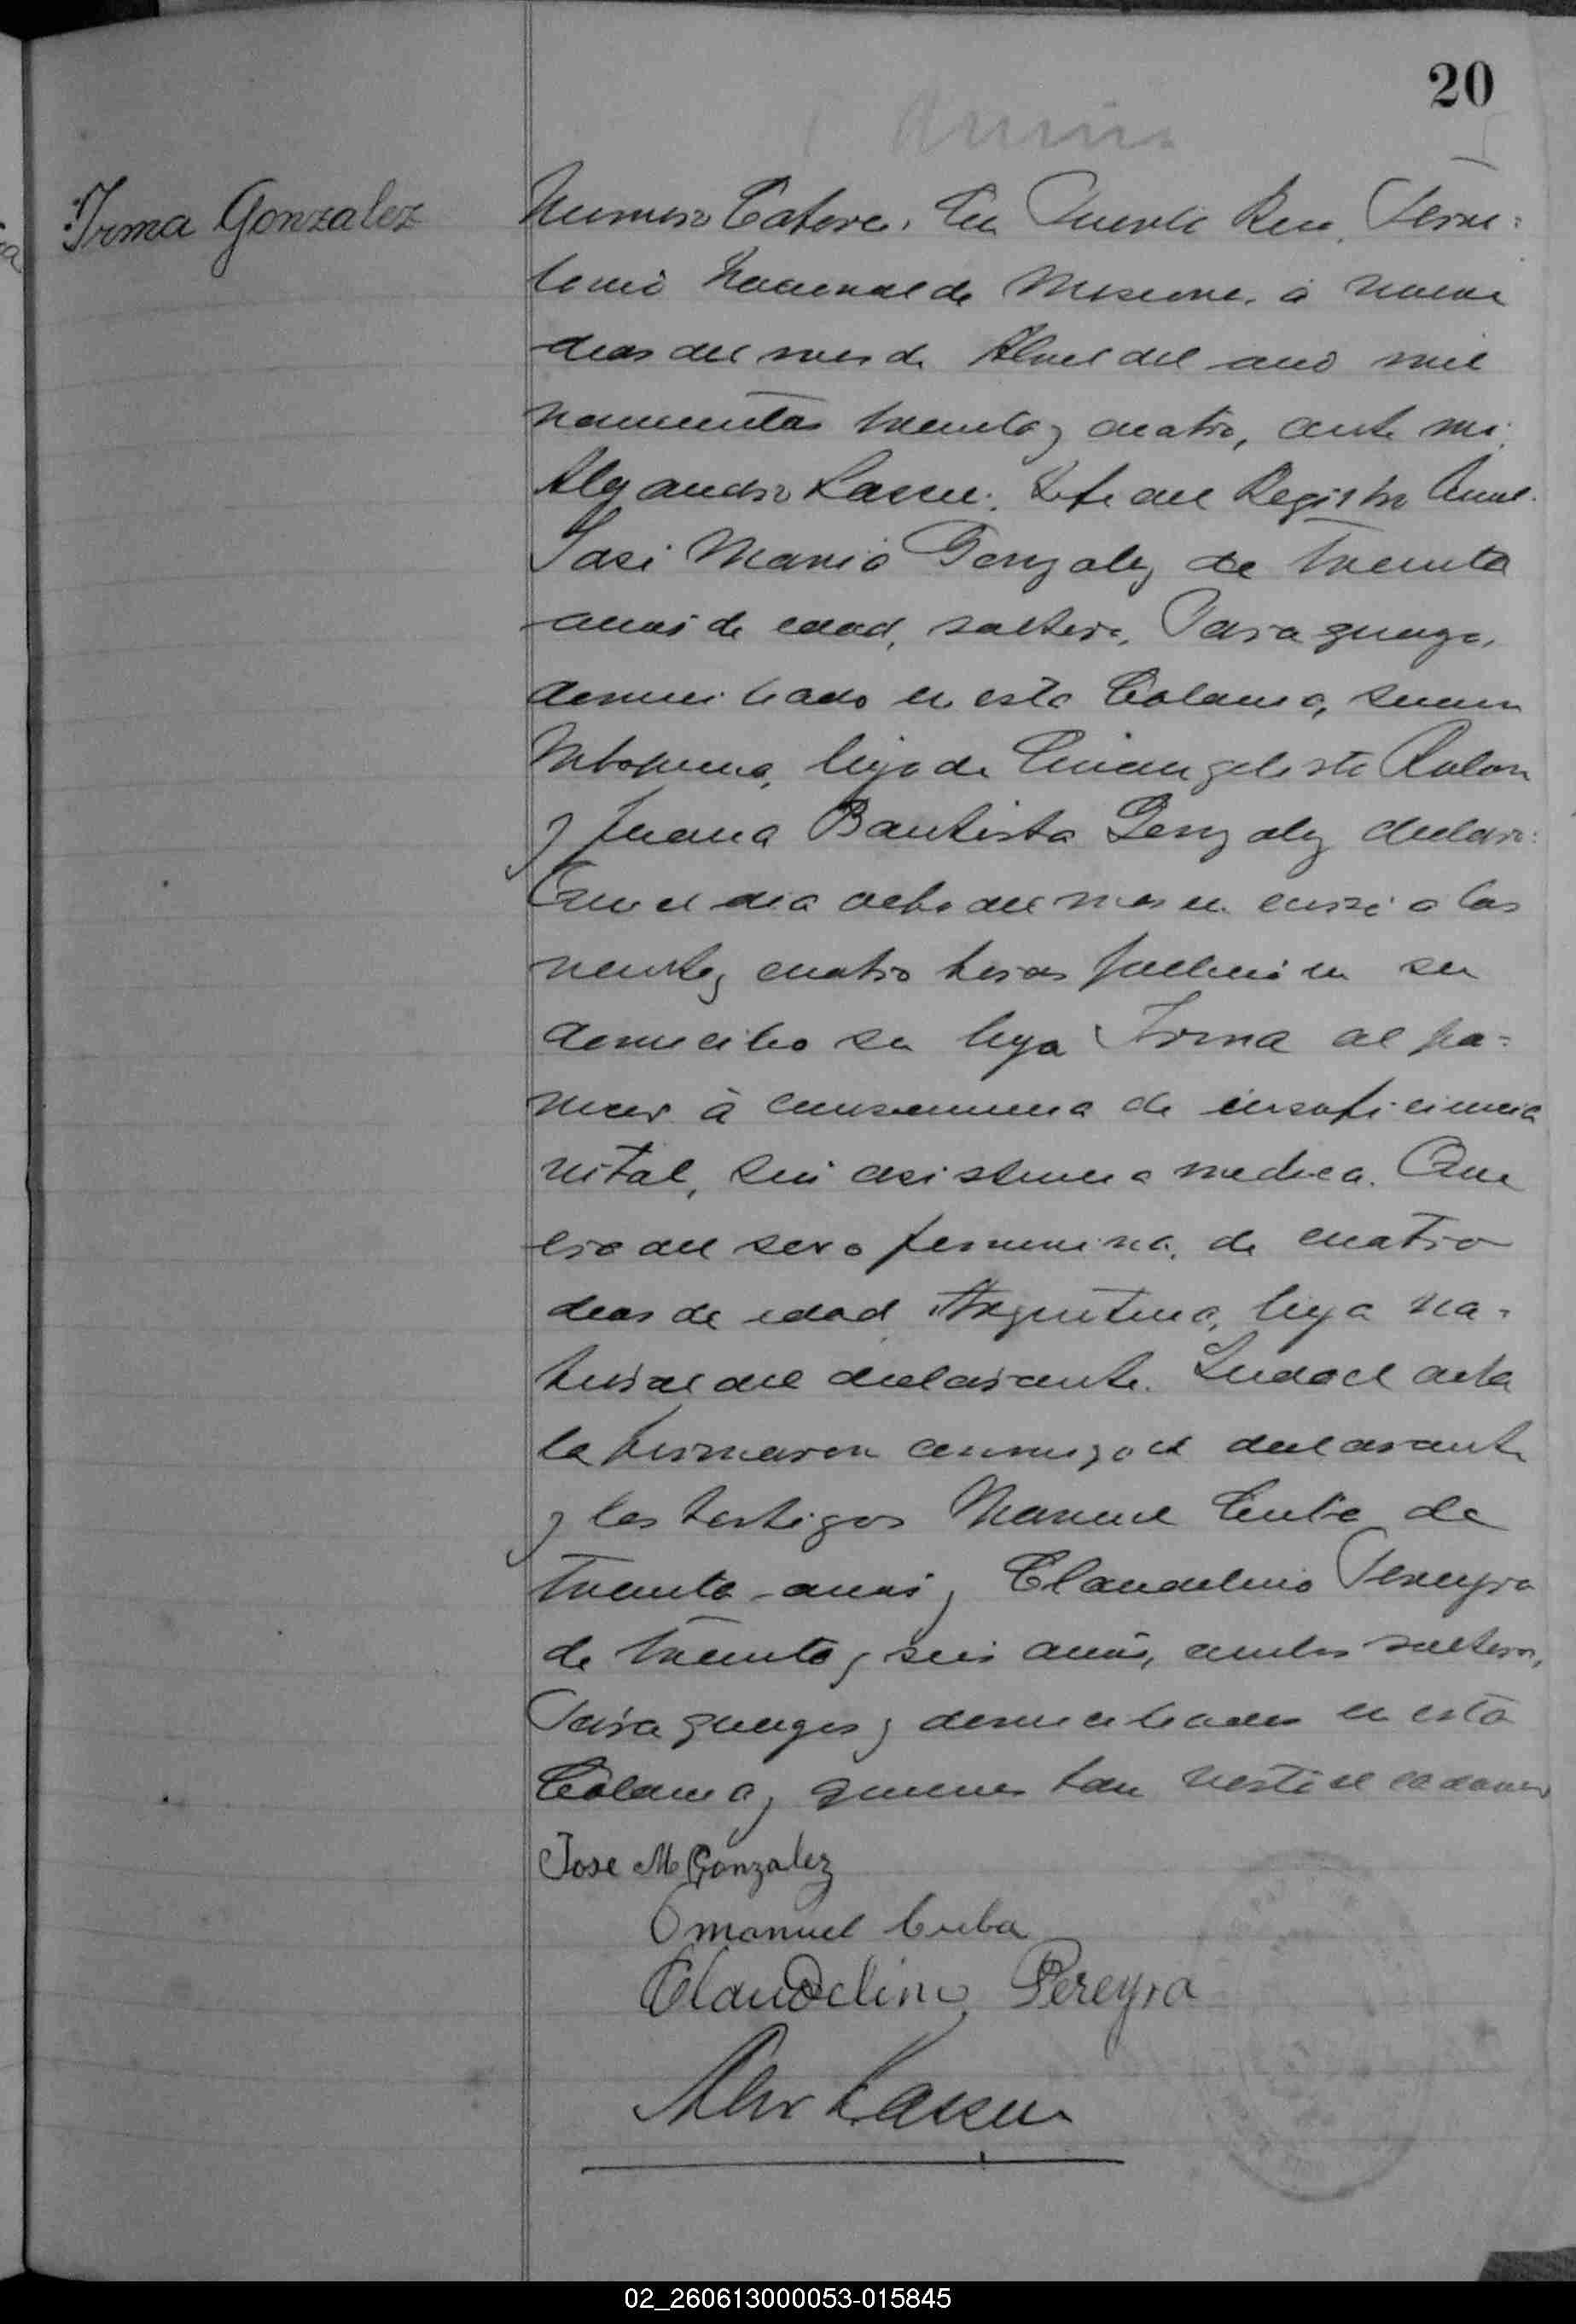 20
Irma Gonzalez
Numero Catorce. En Puerto Rico, Terri=
torio Nacional de Misiones, a nueve
dias del mes de Abril del año mil
novecientos treinta y cuatro, ante mi,
Alejandro Lassen, Jefe del Registro Civil.
José Maria Gonzalez de treinta
años de edad, soltero, Paraguayo,
domiciliado en esta Colonia,
hijo de Evangelista Rolon
y Juana Bautista Gonzalez declaró:
Que el dia ocho del mes en curso a las
veinte y cuatro horas falleció en su
domicilio su hija Irma al pa=
recer à consecuencia de insuficiencia
vital, sin asistencia medica. Que
era del sexo femenino, de cuatro
dias de edad, Argentina, hija na=
tural del declarante. Leida el acta
la firmaron conmigo el declarante
y los testigos Manuel Cuba de
treinta años y Claudelino Pereyra
de treinta y seis años, ambos solteros,
Paraguayos y domiciliados en esta
Colonia, quienes han visto el cadaver
Jose M Gonzalez
Manuel Cuba
Claudelino Pereyra
Alex Lassen
02_260613000053-015845